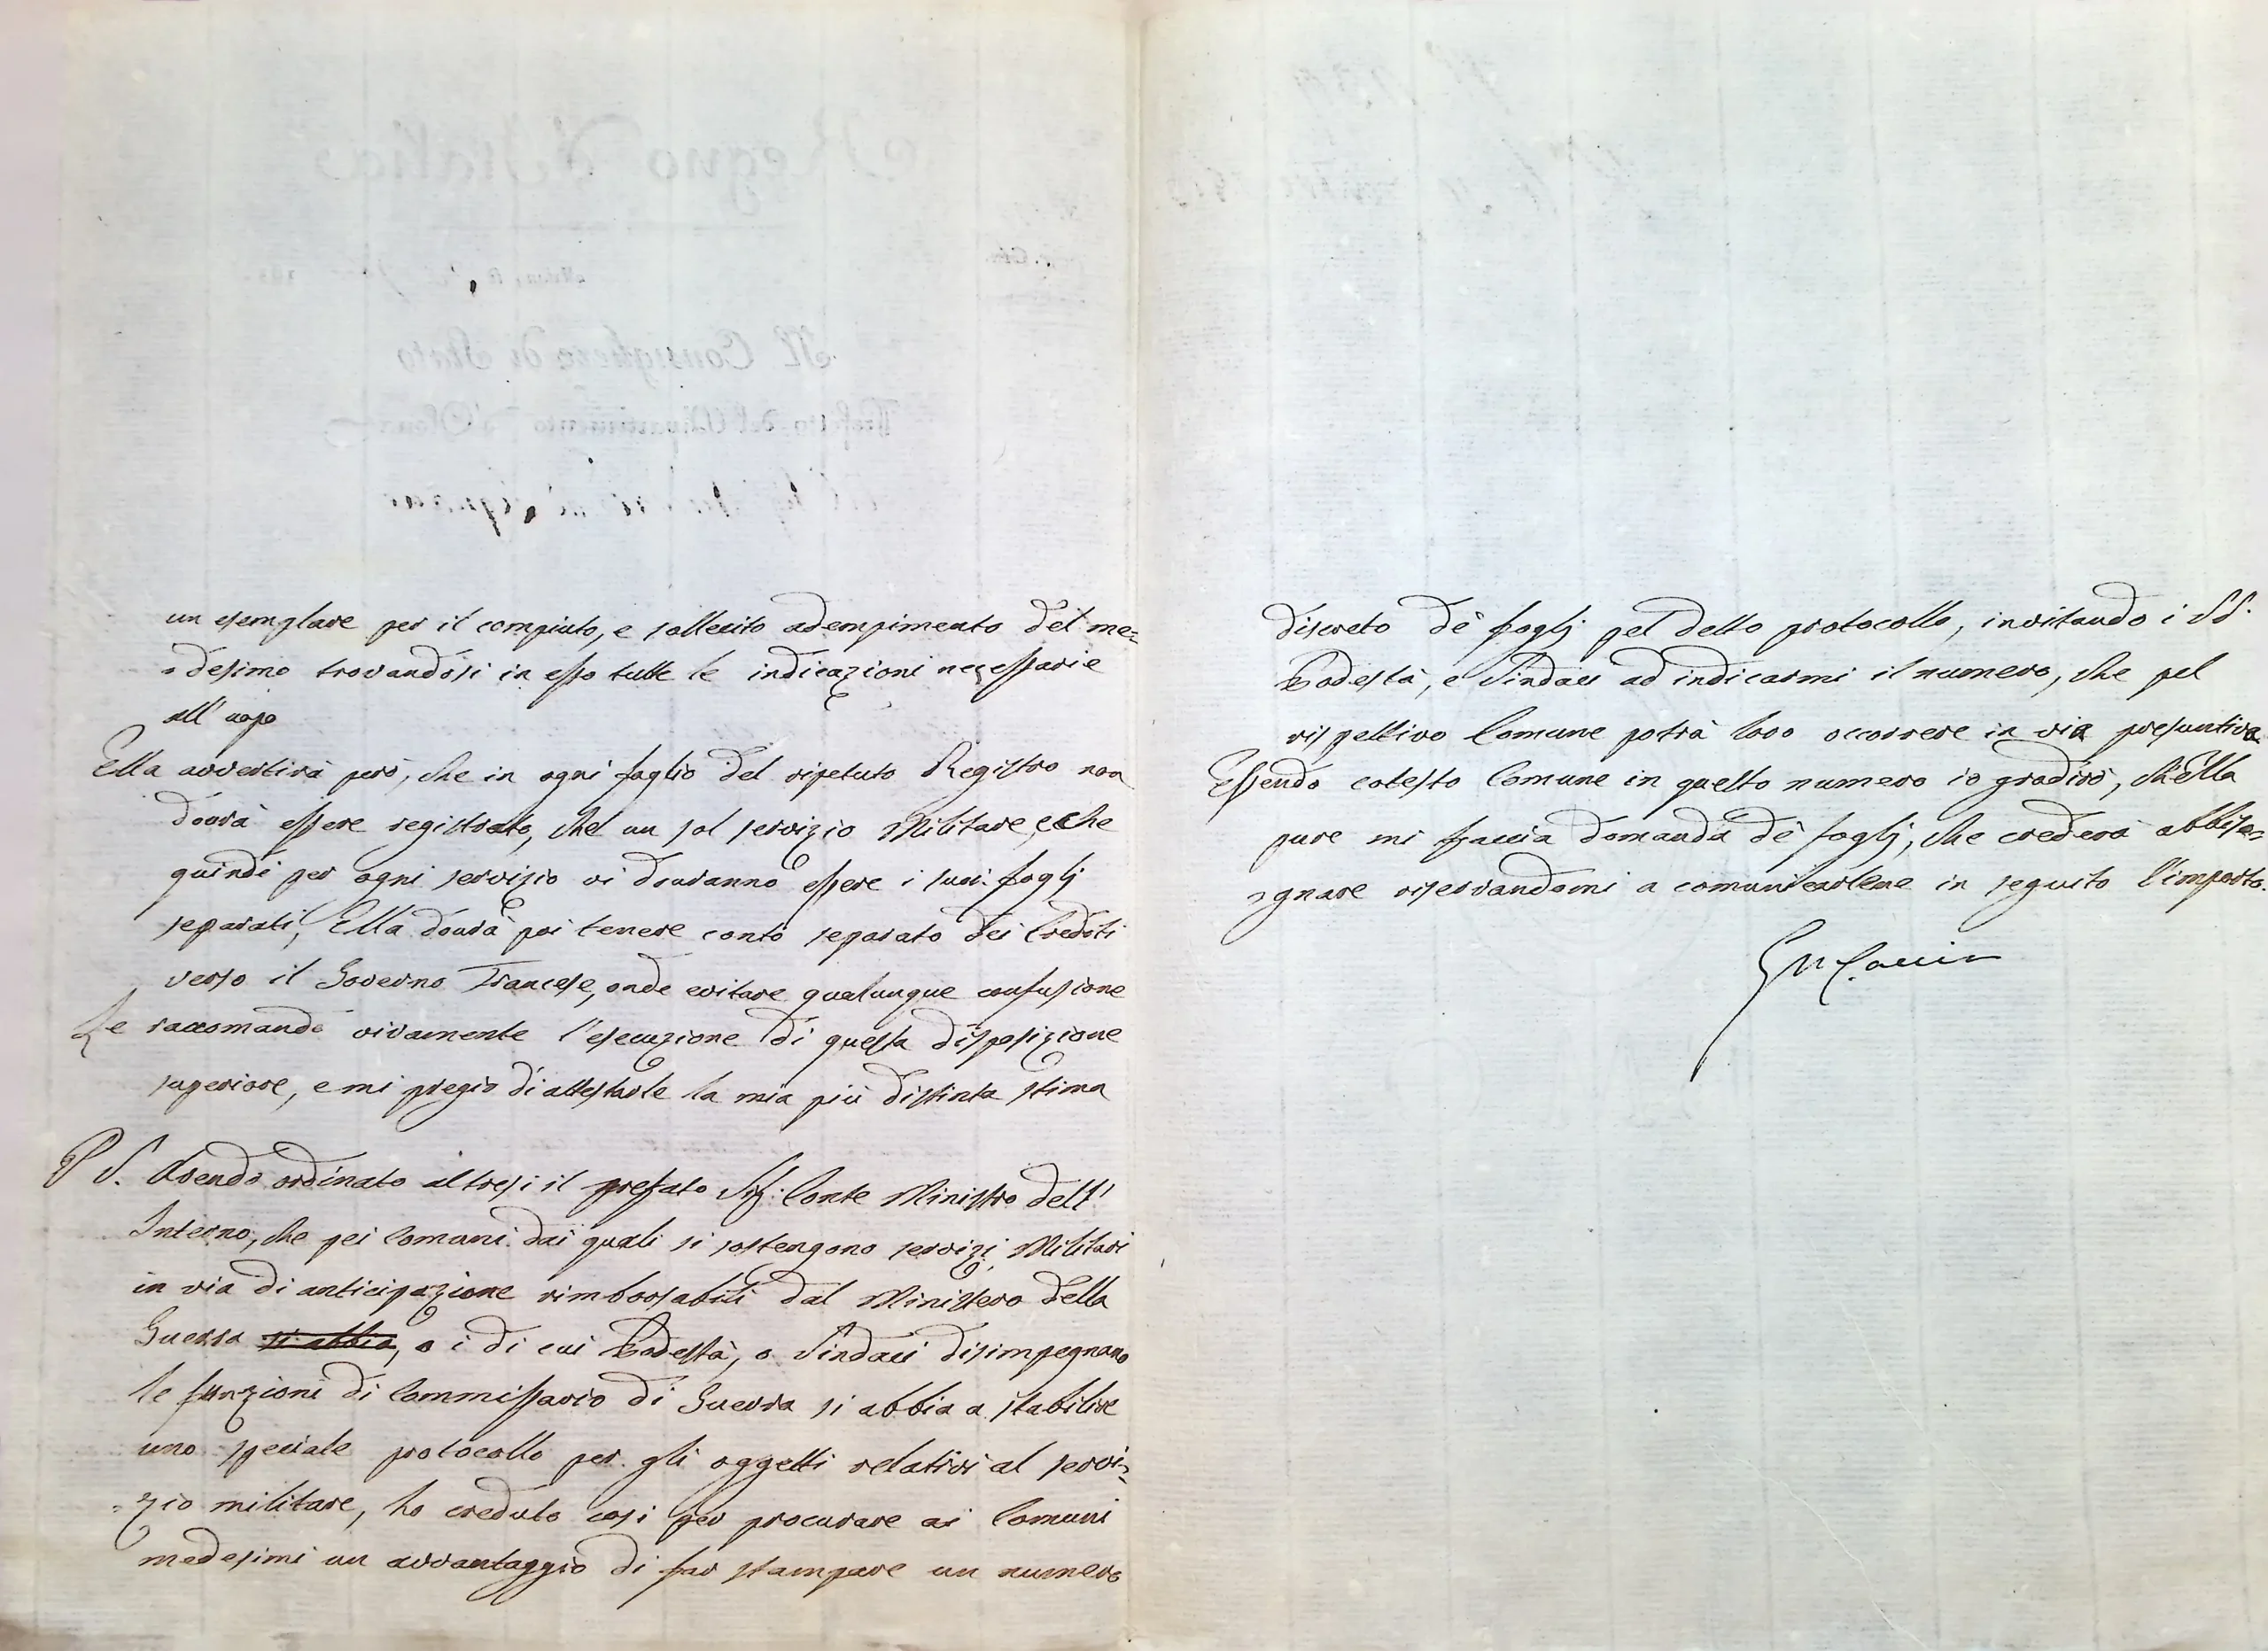 un esemplare per il compiuto, e sollecito adempimento del me=
=desimo trovandosi in esso tutte le indicazioni necessarie
all'uopo
Ella avvertirà però, che in ogni foglio del ripetuto Registro non
dovrà essere registrato, che un sol servizio Militare, e che
quindi per ogni servizio vi dovranno essere i suoi foglj
separati, Ella dovrà poi tenere conto separato dei Crediti
verso il Governo Francese, onde evitare qualunque confusione
Le raccomando vivamente l'esecuzione di questa disposizione
superiore, e mi pregio di attestarle la mia più distinta stima
P S. Avendo ordinato altresi il prefato Sig: Conte Ministro dell'
Interno, che pei Comuni dai quali si sostengono servizj Militari
in via di anticipazione rimborsabili dal Ministero della
Guerra si abbia, o i di cui Podestà, o Sindaci disimpegnano
le funzioni di Commissario di Guerra si abbia a stabilire
uno speciale protocollo per gli oggetti relativi al servi=
=zio militare, ho creduto così per procurare ai Comuni
medesimi un avvantaggio di far stampare un numero
discreto de' foglj pel detto protocollo, invitando i SS.
Podestà, e Sindaci ad indicarmi il numero, che pel
rispettivo Comune potrà loro occorrere in via presuntiva
Essendo cotesto Comune in questo numero io gradirò, ch'Ella
pure mi faccia domanda de' foglj, che crederà abbiso=
=gnare riservandomi a comunicarlene in seguito l'importo.